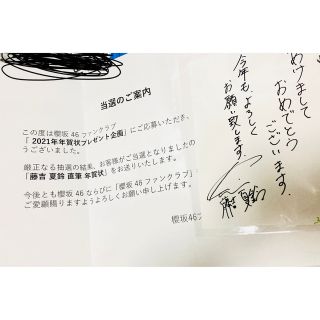 当選のご案内
この度は櫻坂46ファンクラブ
「2021年年賀状プレゼント企画」にご応募いただき、
うございました。
厳正なる抽選の結果、お客様がご当選となりましたの
「藤吉 夏鈴 直筆 年賀状」をお送りいたします。
今後とも櫻坂46ならびに「櫻坂46ファンクラブ」
ご愛顧賜りますようよろしくお願い申し上げます。
櫻坂46フ
あけまして
おめでとう
ございます。
今年も、よろしく
お願い致します。
藤吉夏鈴